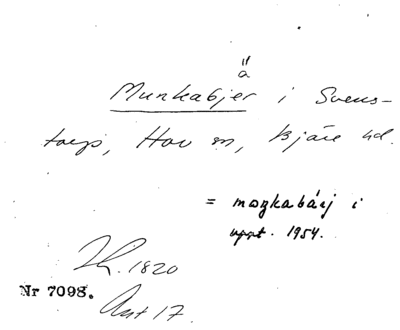 ä
Munkabjer i Svens-
torp, Hov sn, Bjäre hd.
= moŋkabárj i
uppt. 1954.
Th. 1820
Nr 7098.
Ant 17